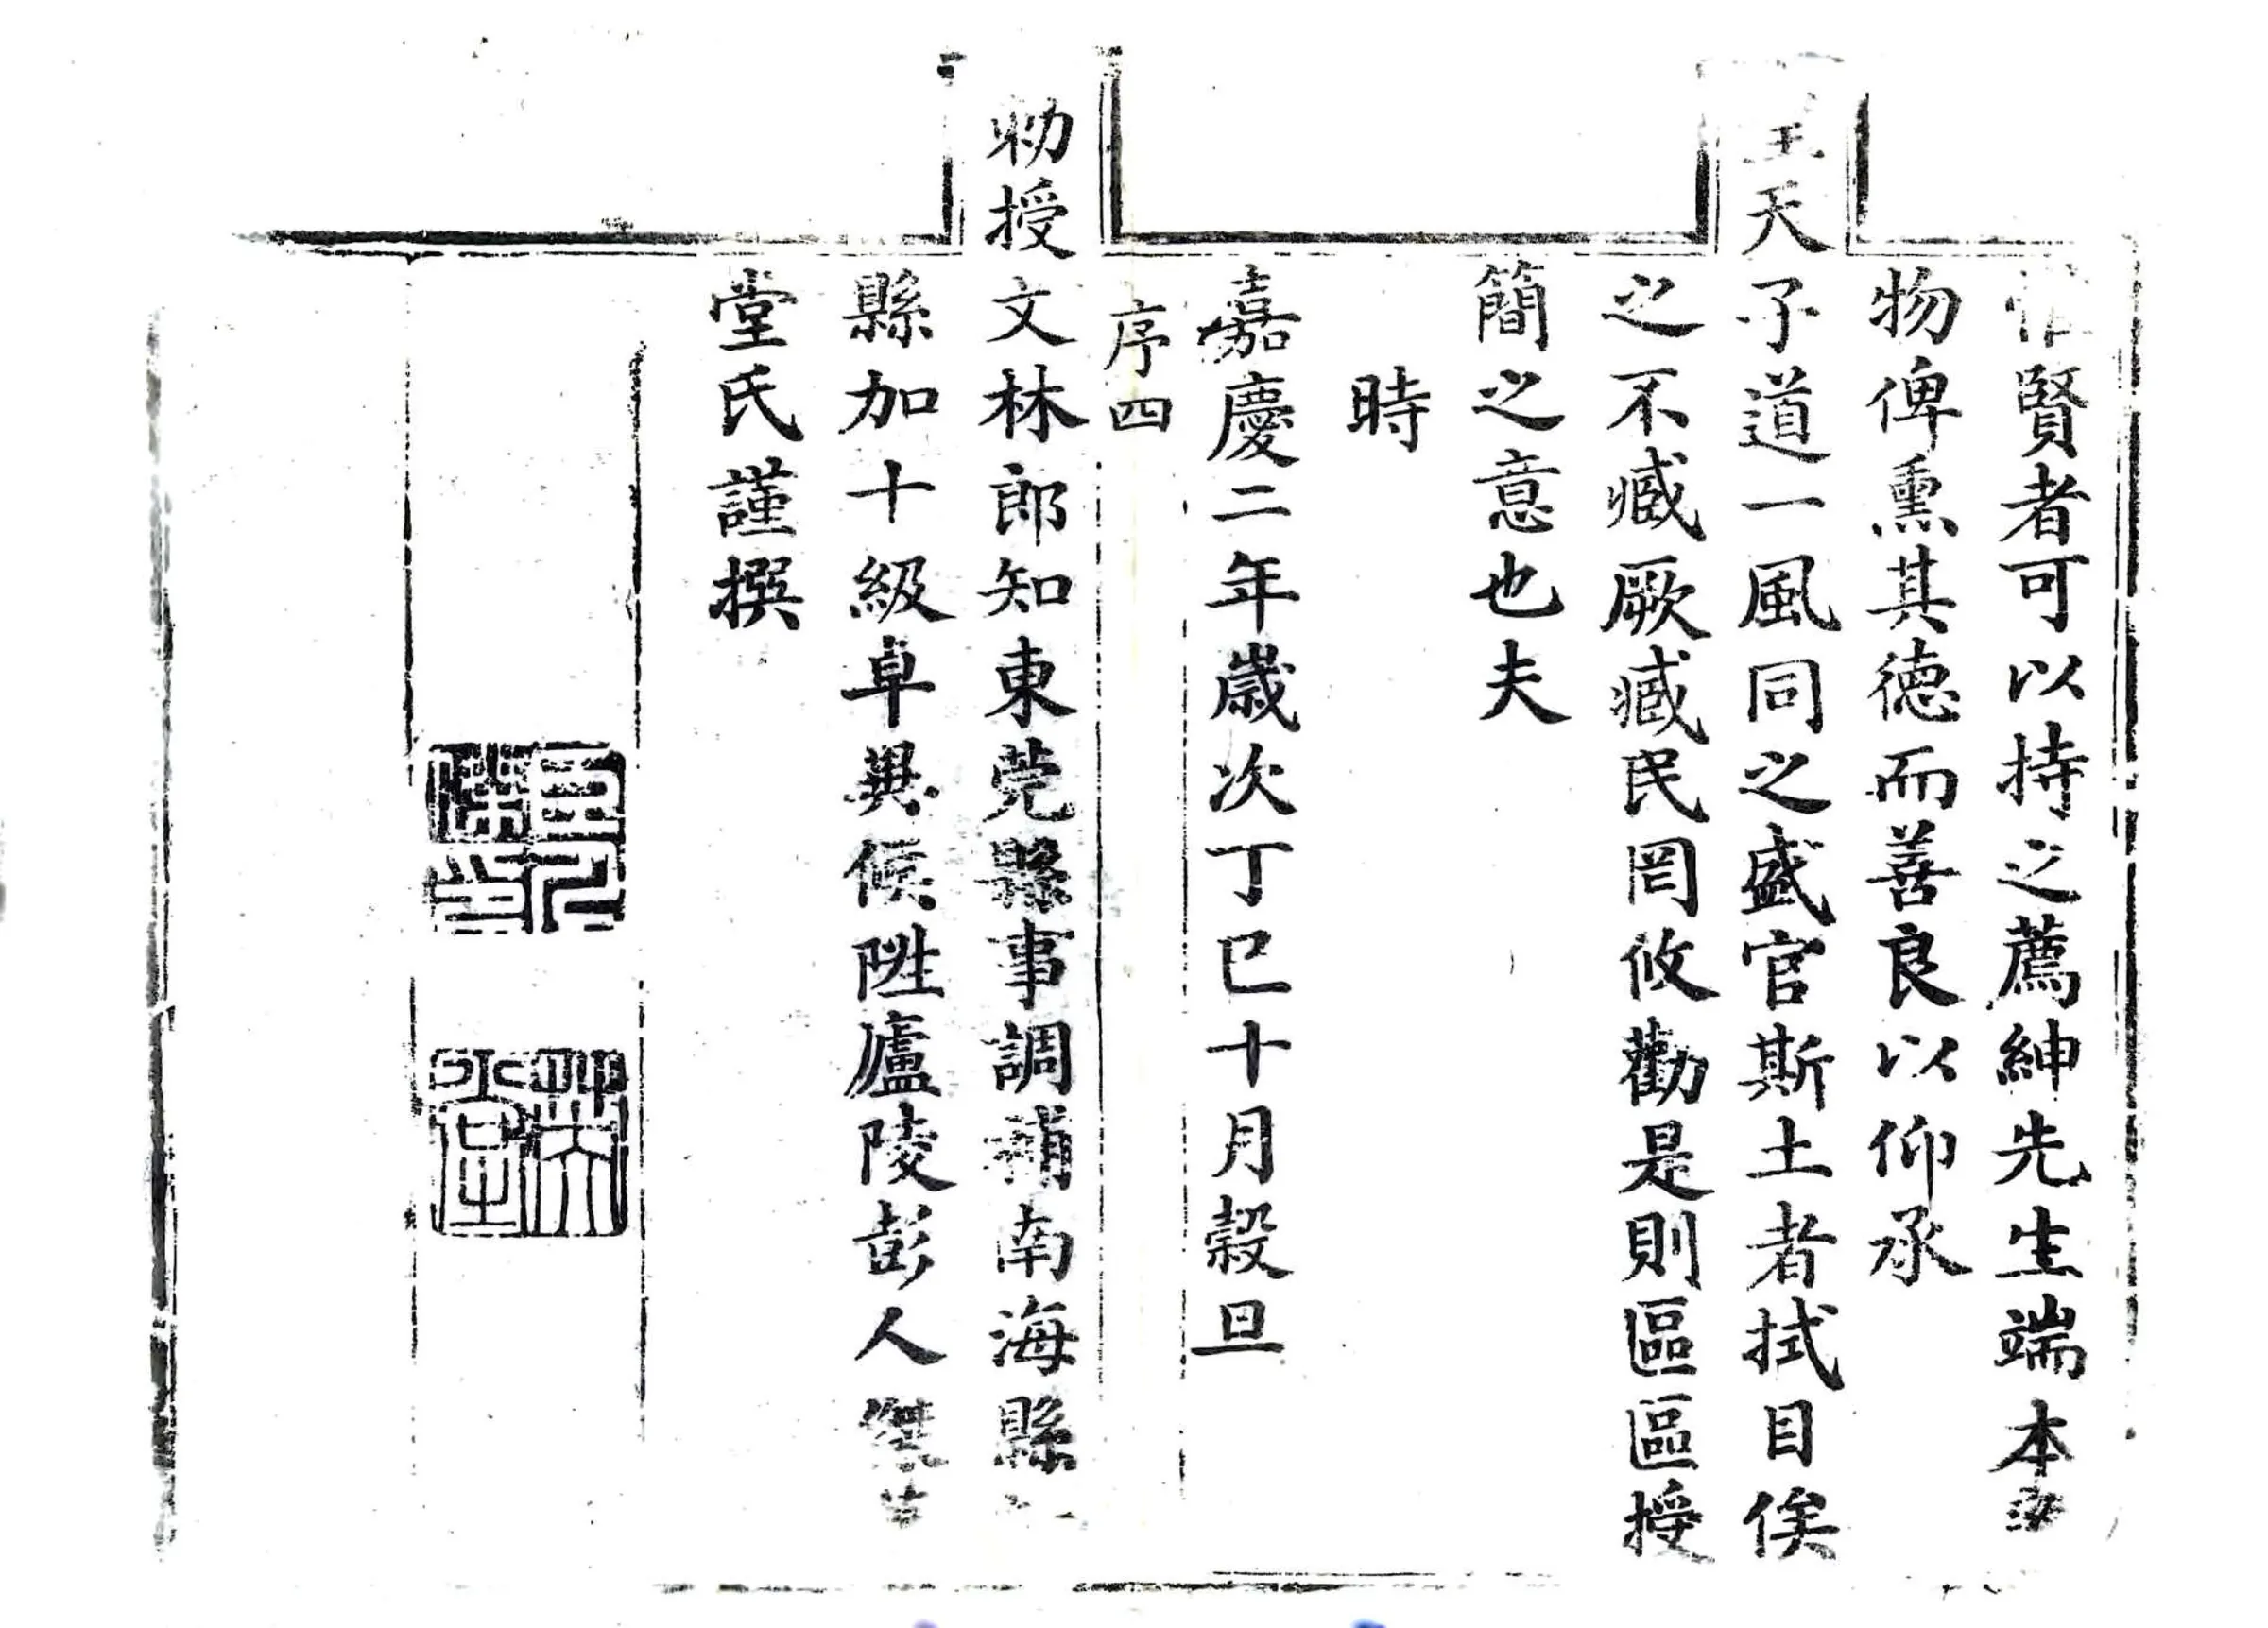 惟賢者可以持之薦紳先生端本
物俾熏其德而善良以仰承
天子道一風同之盛官斯土者拭目俟
之不臧厥臧民罔攸勸是則區區授
簡之意也夫
時
嘉慶二年歲次丁巳十月穀旦
序四
勅授文林郎知東莞縣事調補南海縣
縣加十級卓異候陞廬陵彭人傑
堂氏謹撰